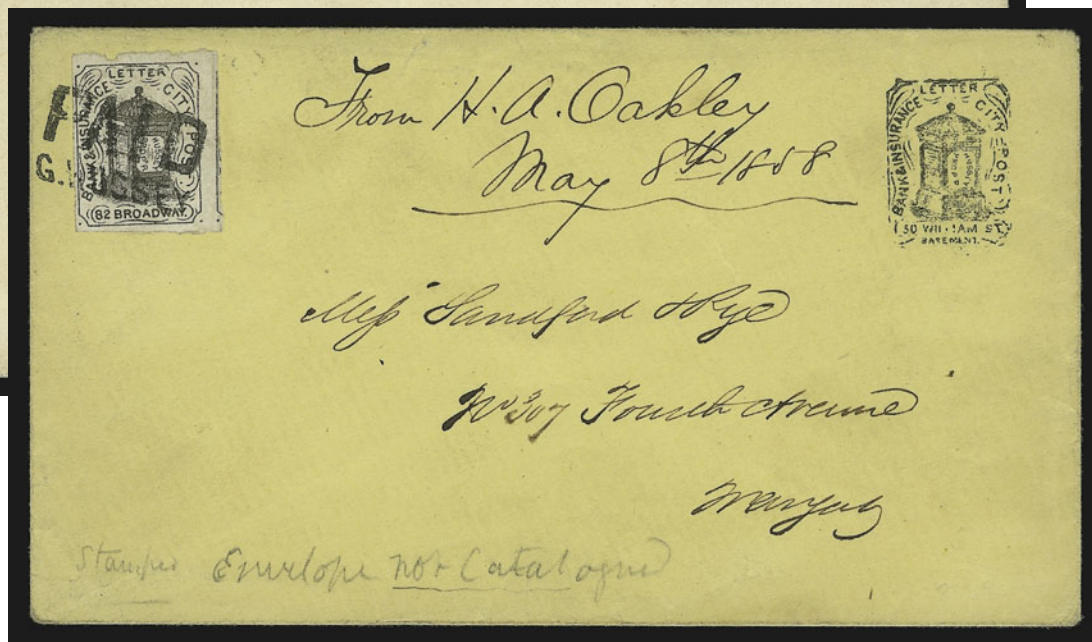 LETTER
BANK & INSURANCE CITY POST
82 BROADWAY.
PAID
G.
From H. A. Oakley
May 8th 1858
LETTER
BANK & INSURANCE CITY POST
50 WILLIAM ST
BASEMENT.
Sandford
No 307 Fourth Avenue
Stamped Envelope not Catalogued